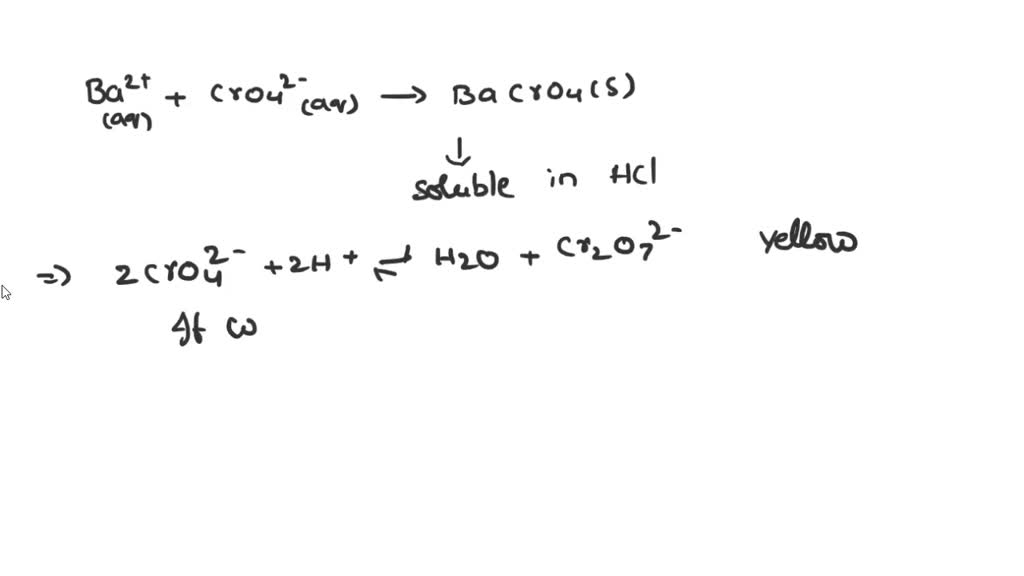 Ba²⁺(aq) + CrO₄²⁻(aq) → BaCrO₄(s)
↓
soluble in HCl
⇒ 2CrO₄²⁻ + 2H⁺ ⇌ H₂O + Cr₂O₇²⁻ yellow
If co